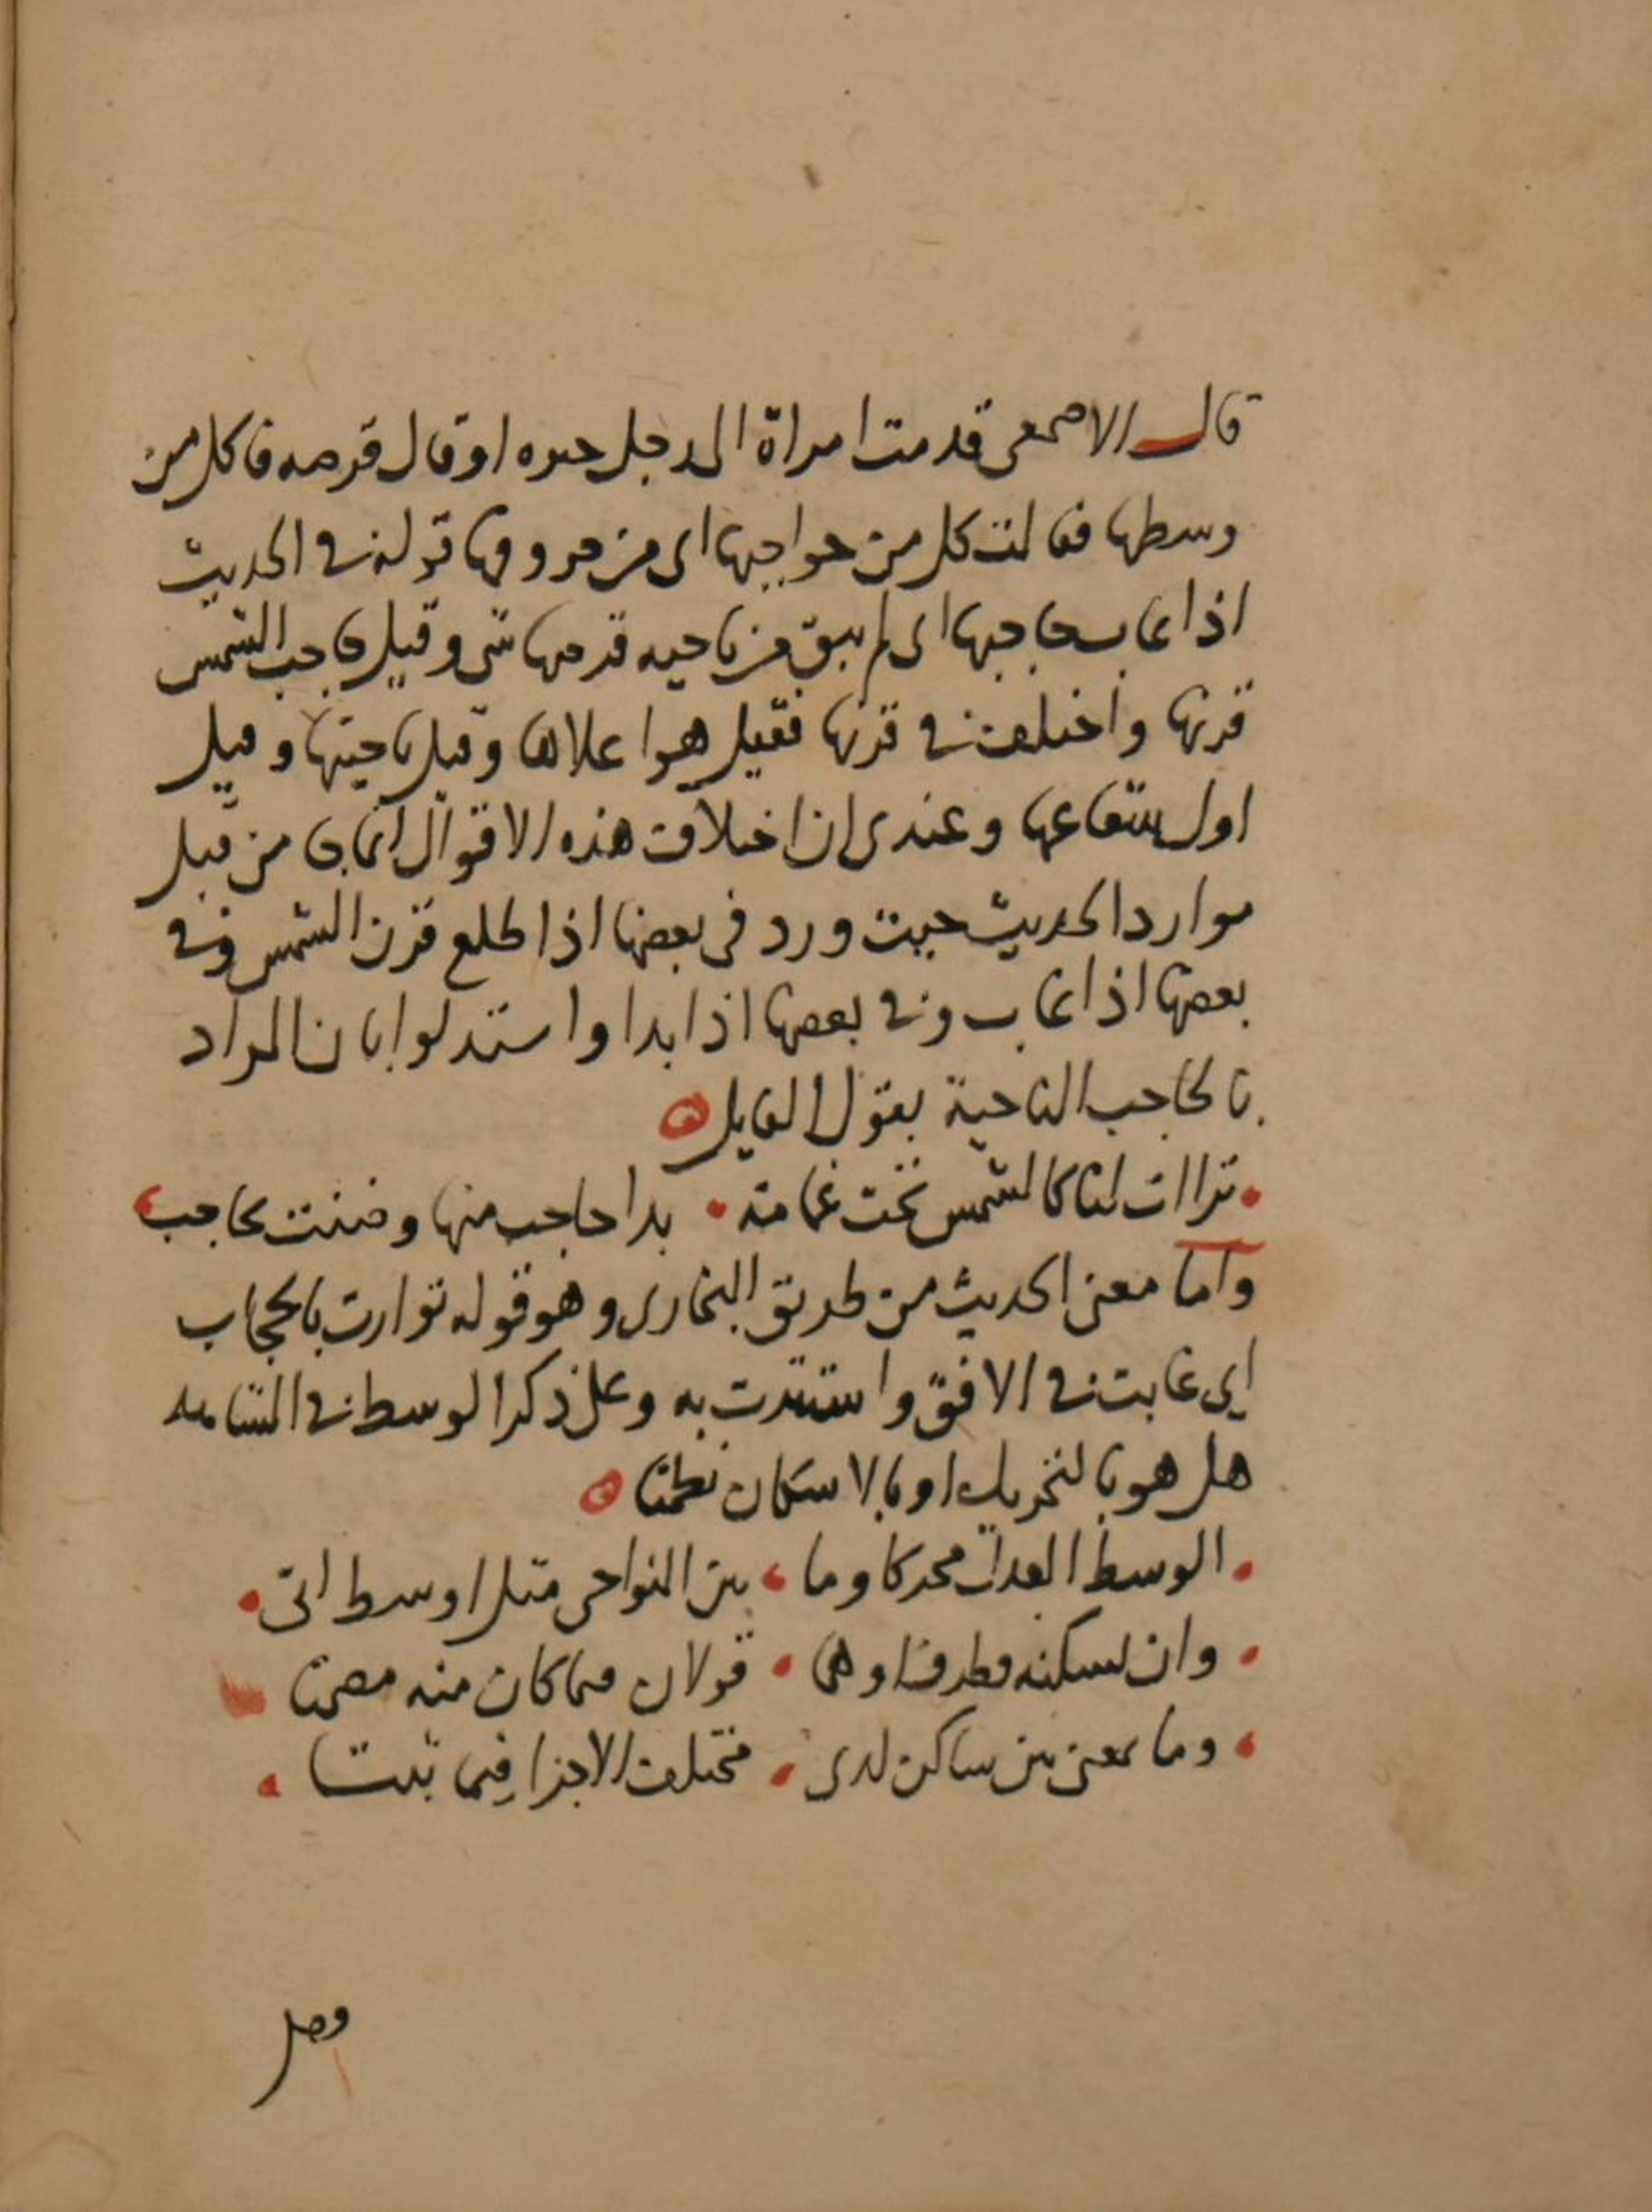 قال الاصمعى قدمت امراة الى رجل خبزه او قال قرصه فاكل من
وسطها فقالت كل من حواجبها اى من حروفها قوله فى الحديث
اذا غاب حاجبها اى لم يبق من ناحيه قرصها شى وقيل حاجب الشمس
قرنها واختلف فى قرنها فقيل هو اعلاها وقيل ناحيتها وقيل
اول شعاعها وعندى ان اختلاف هذه الاقوال انما جا من قبل
موارد الحديث حيث ورد فى بعضها اذا طلع قرن الشمس وفى
بعضها اذا غاب وفى بعضها اذا بدا واستدلوا بان المراد
بالحاجب الناحية بقول القايل
تراات لنا كالشمس تحت غمامة بدا حاجب منها وضنت بحاجب
واما معنى الحديث من طريق البخارى وهو قوله توارت بالحجاب
اي غابت فى الافق واستترت به وعلى ذكر الوسط فى
هل هو بالتحريك او بالاسكان نظمنا
الوسط العدل محركا وما بين النواحى مثل اوسط اتى
وان تسكنه فظرف او هما قولان فيما كان منه مصمتا
وما بمعنى بين ساكن لدى مختلف الاجزا فيما ثبتا
وصل